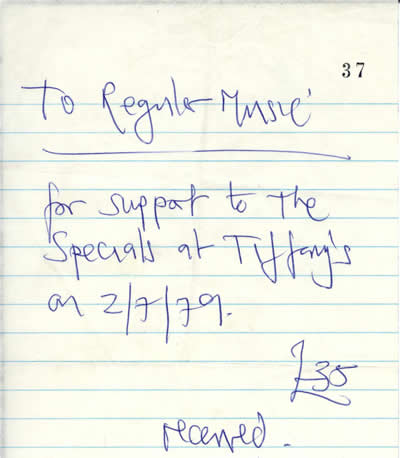 37
To Regular Music
for support to The
Specials at Tiffany's
on 2/7/79.
£35
received.